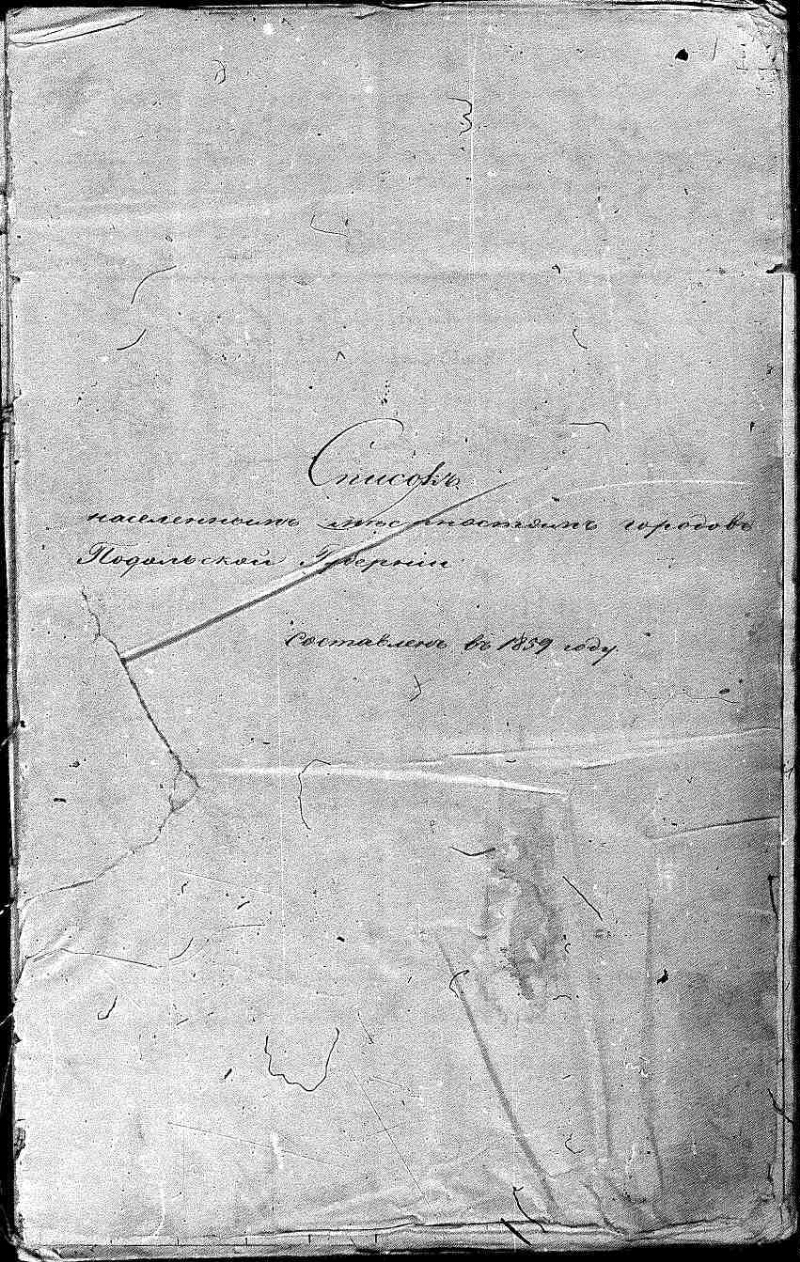 Списокъ
населеннымъ мѣстностямъ городовъ
Подольской Губерніи
Составленъ въ 1859 году.